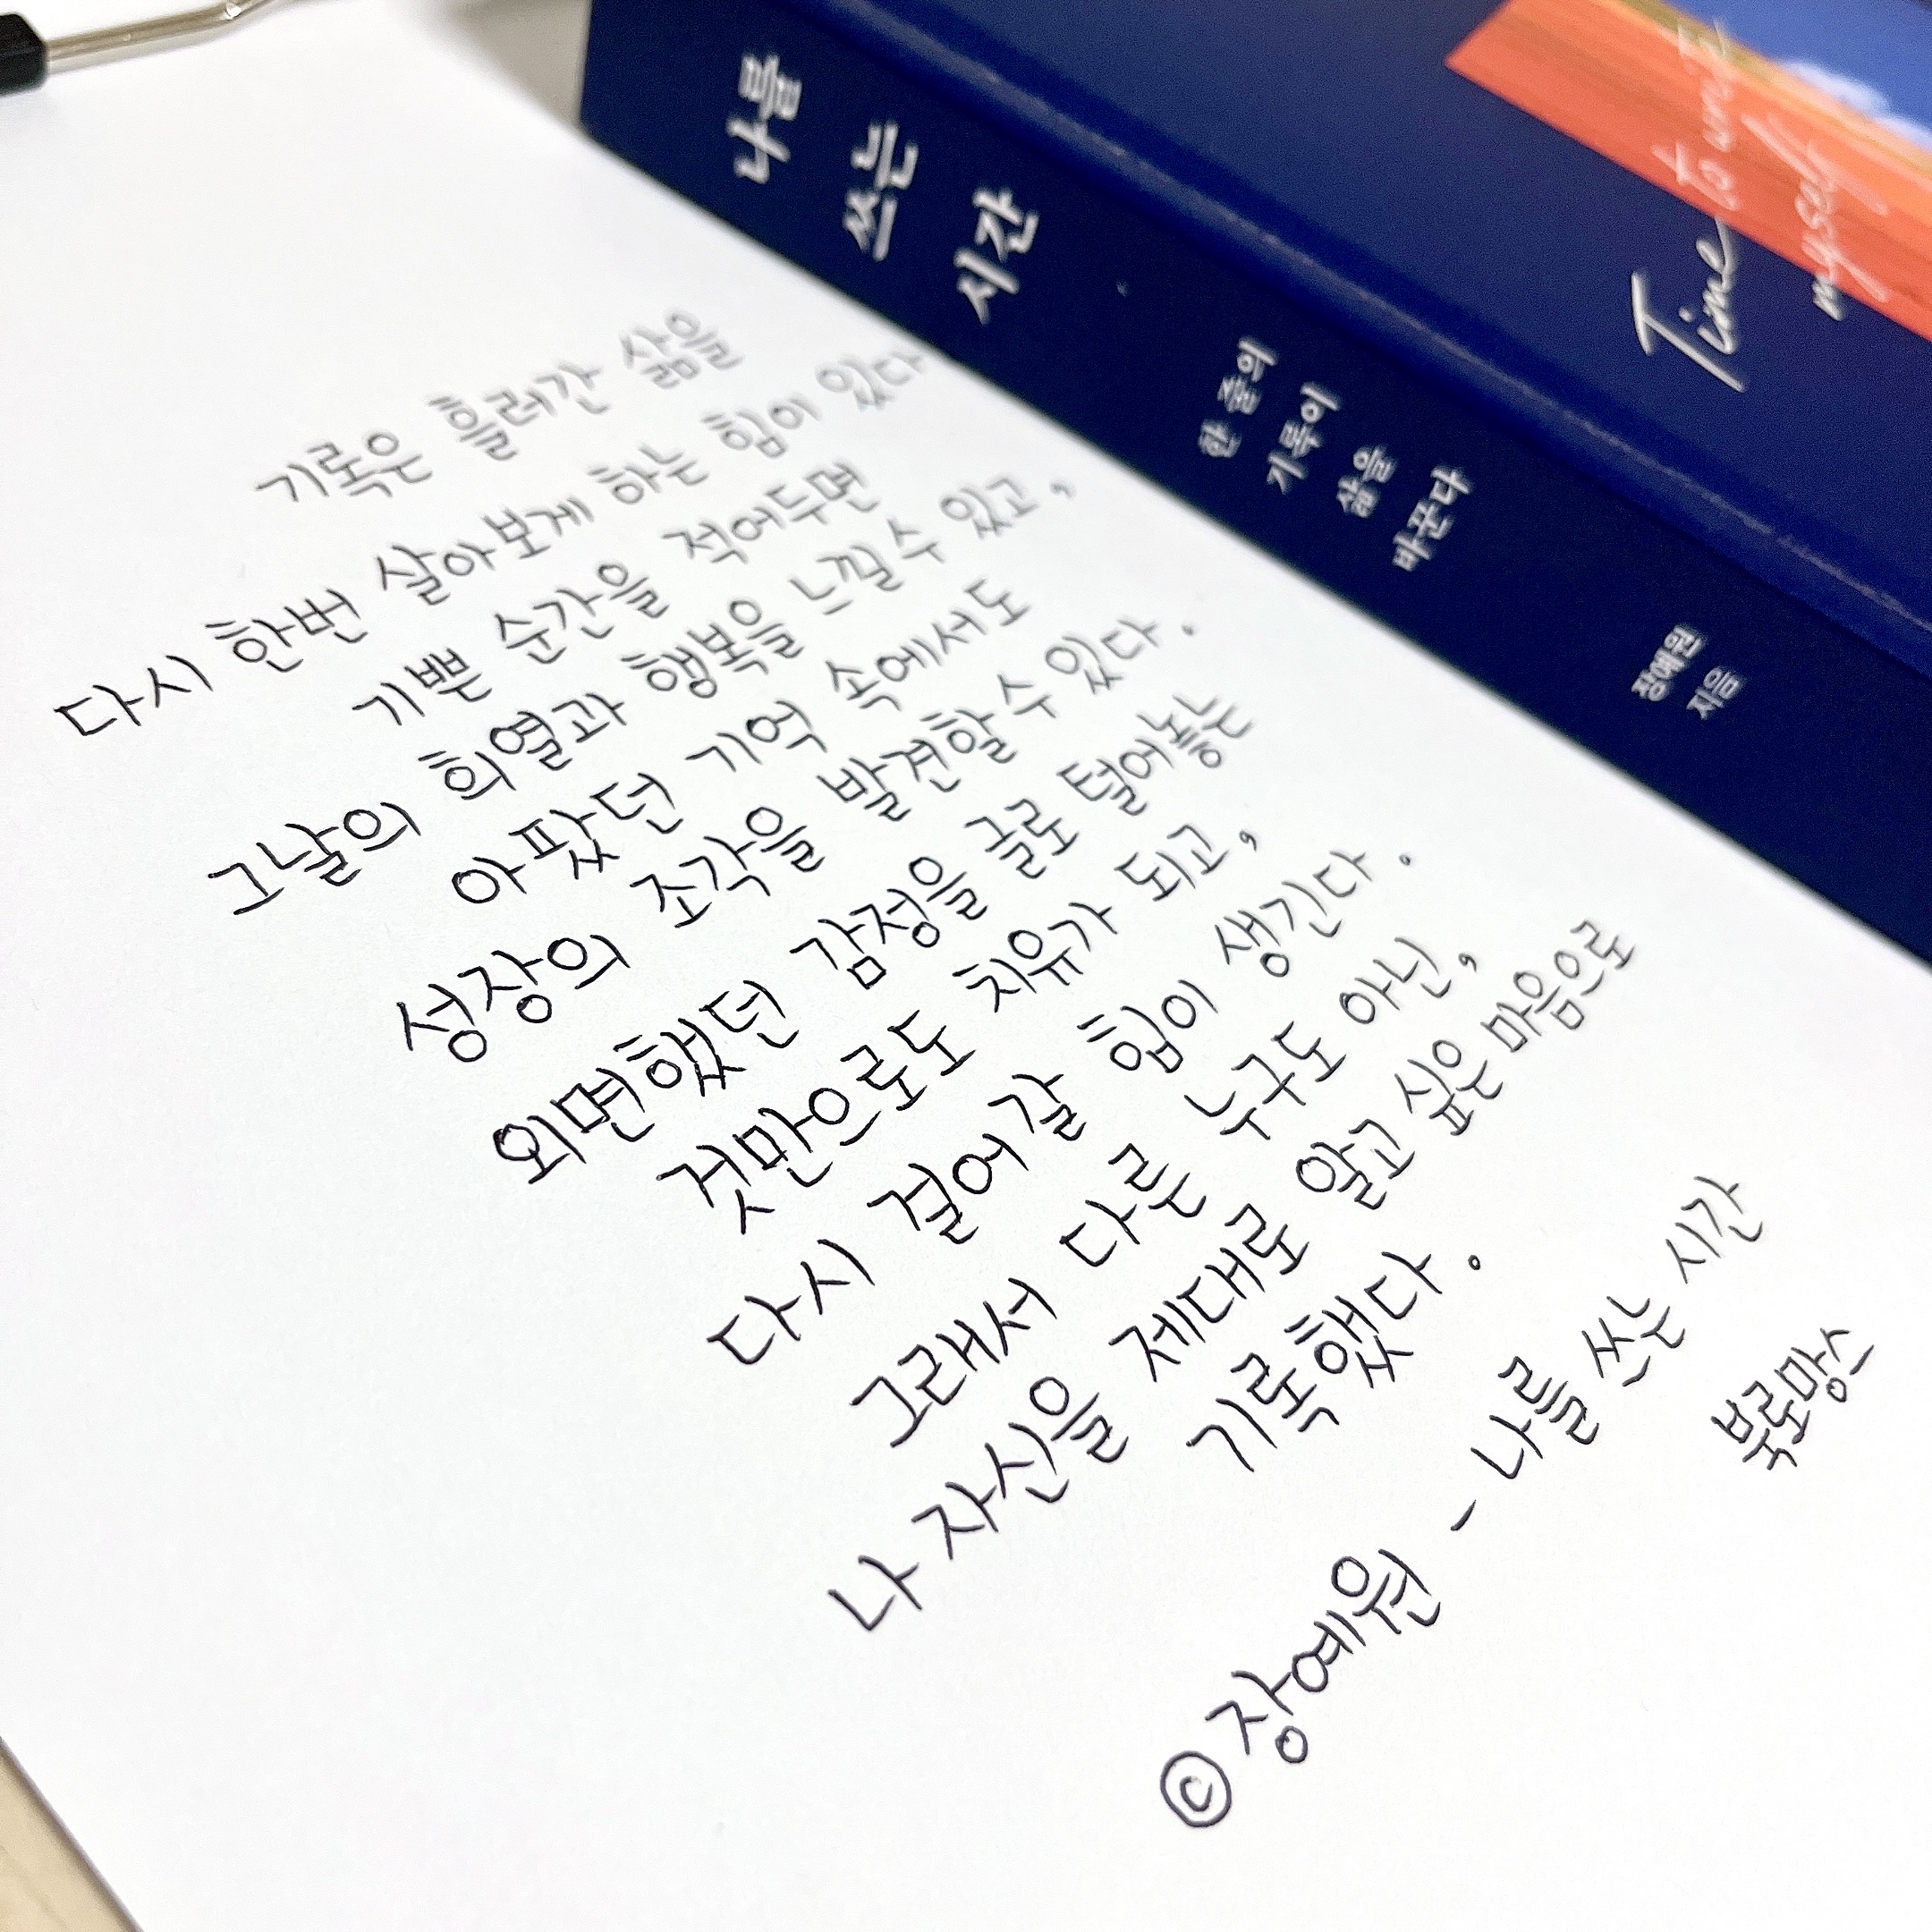 나를
쓰는
시간
한 줄의
기록이
삶을
바꾼다
장예원
지음
Time to write
myself
기록은 흘러간 삶을
다시 한번 살아보게 하는 힘이 있다
기쁜 순간을 적어두면
그날의 희열과 행복을 느낄 수 있고,
아팠던 기억 속에서도
성장의 조각을 발견할 수 있다.
외면했던 감정을 글로 털어놓는
것만으로도 치유가 되고,
다시 걸어갈 힘이 생긴다.
그래서 다른 누구도 아닌,
나 자신을 제대로 알고 싶은 마음으로
기록했다.
ⓒ 장예원 - 나를 쓰는 시간
북로망스